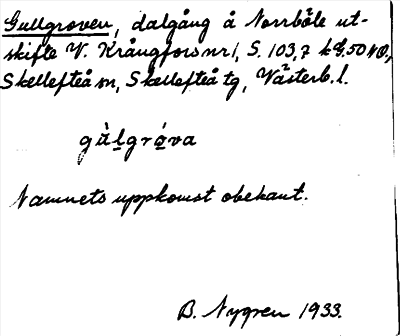 Gullgroven, dalgång å Norrböle ut-
skifte V. Krångfors nr 1, S. 103,7 k G. 50 vO,
Skellefteå sn, Skellefteå tg, Västerb. l.
gùlgróva
Namnets uppkomst obekant.
B. Nygren 1933.